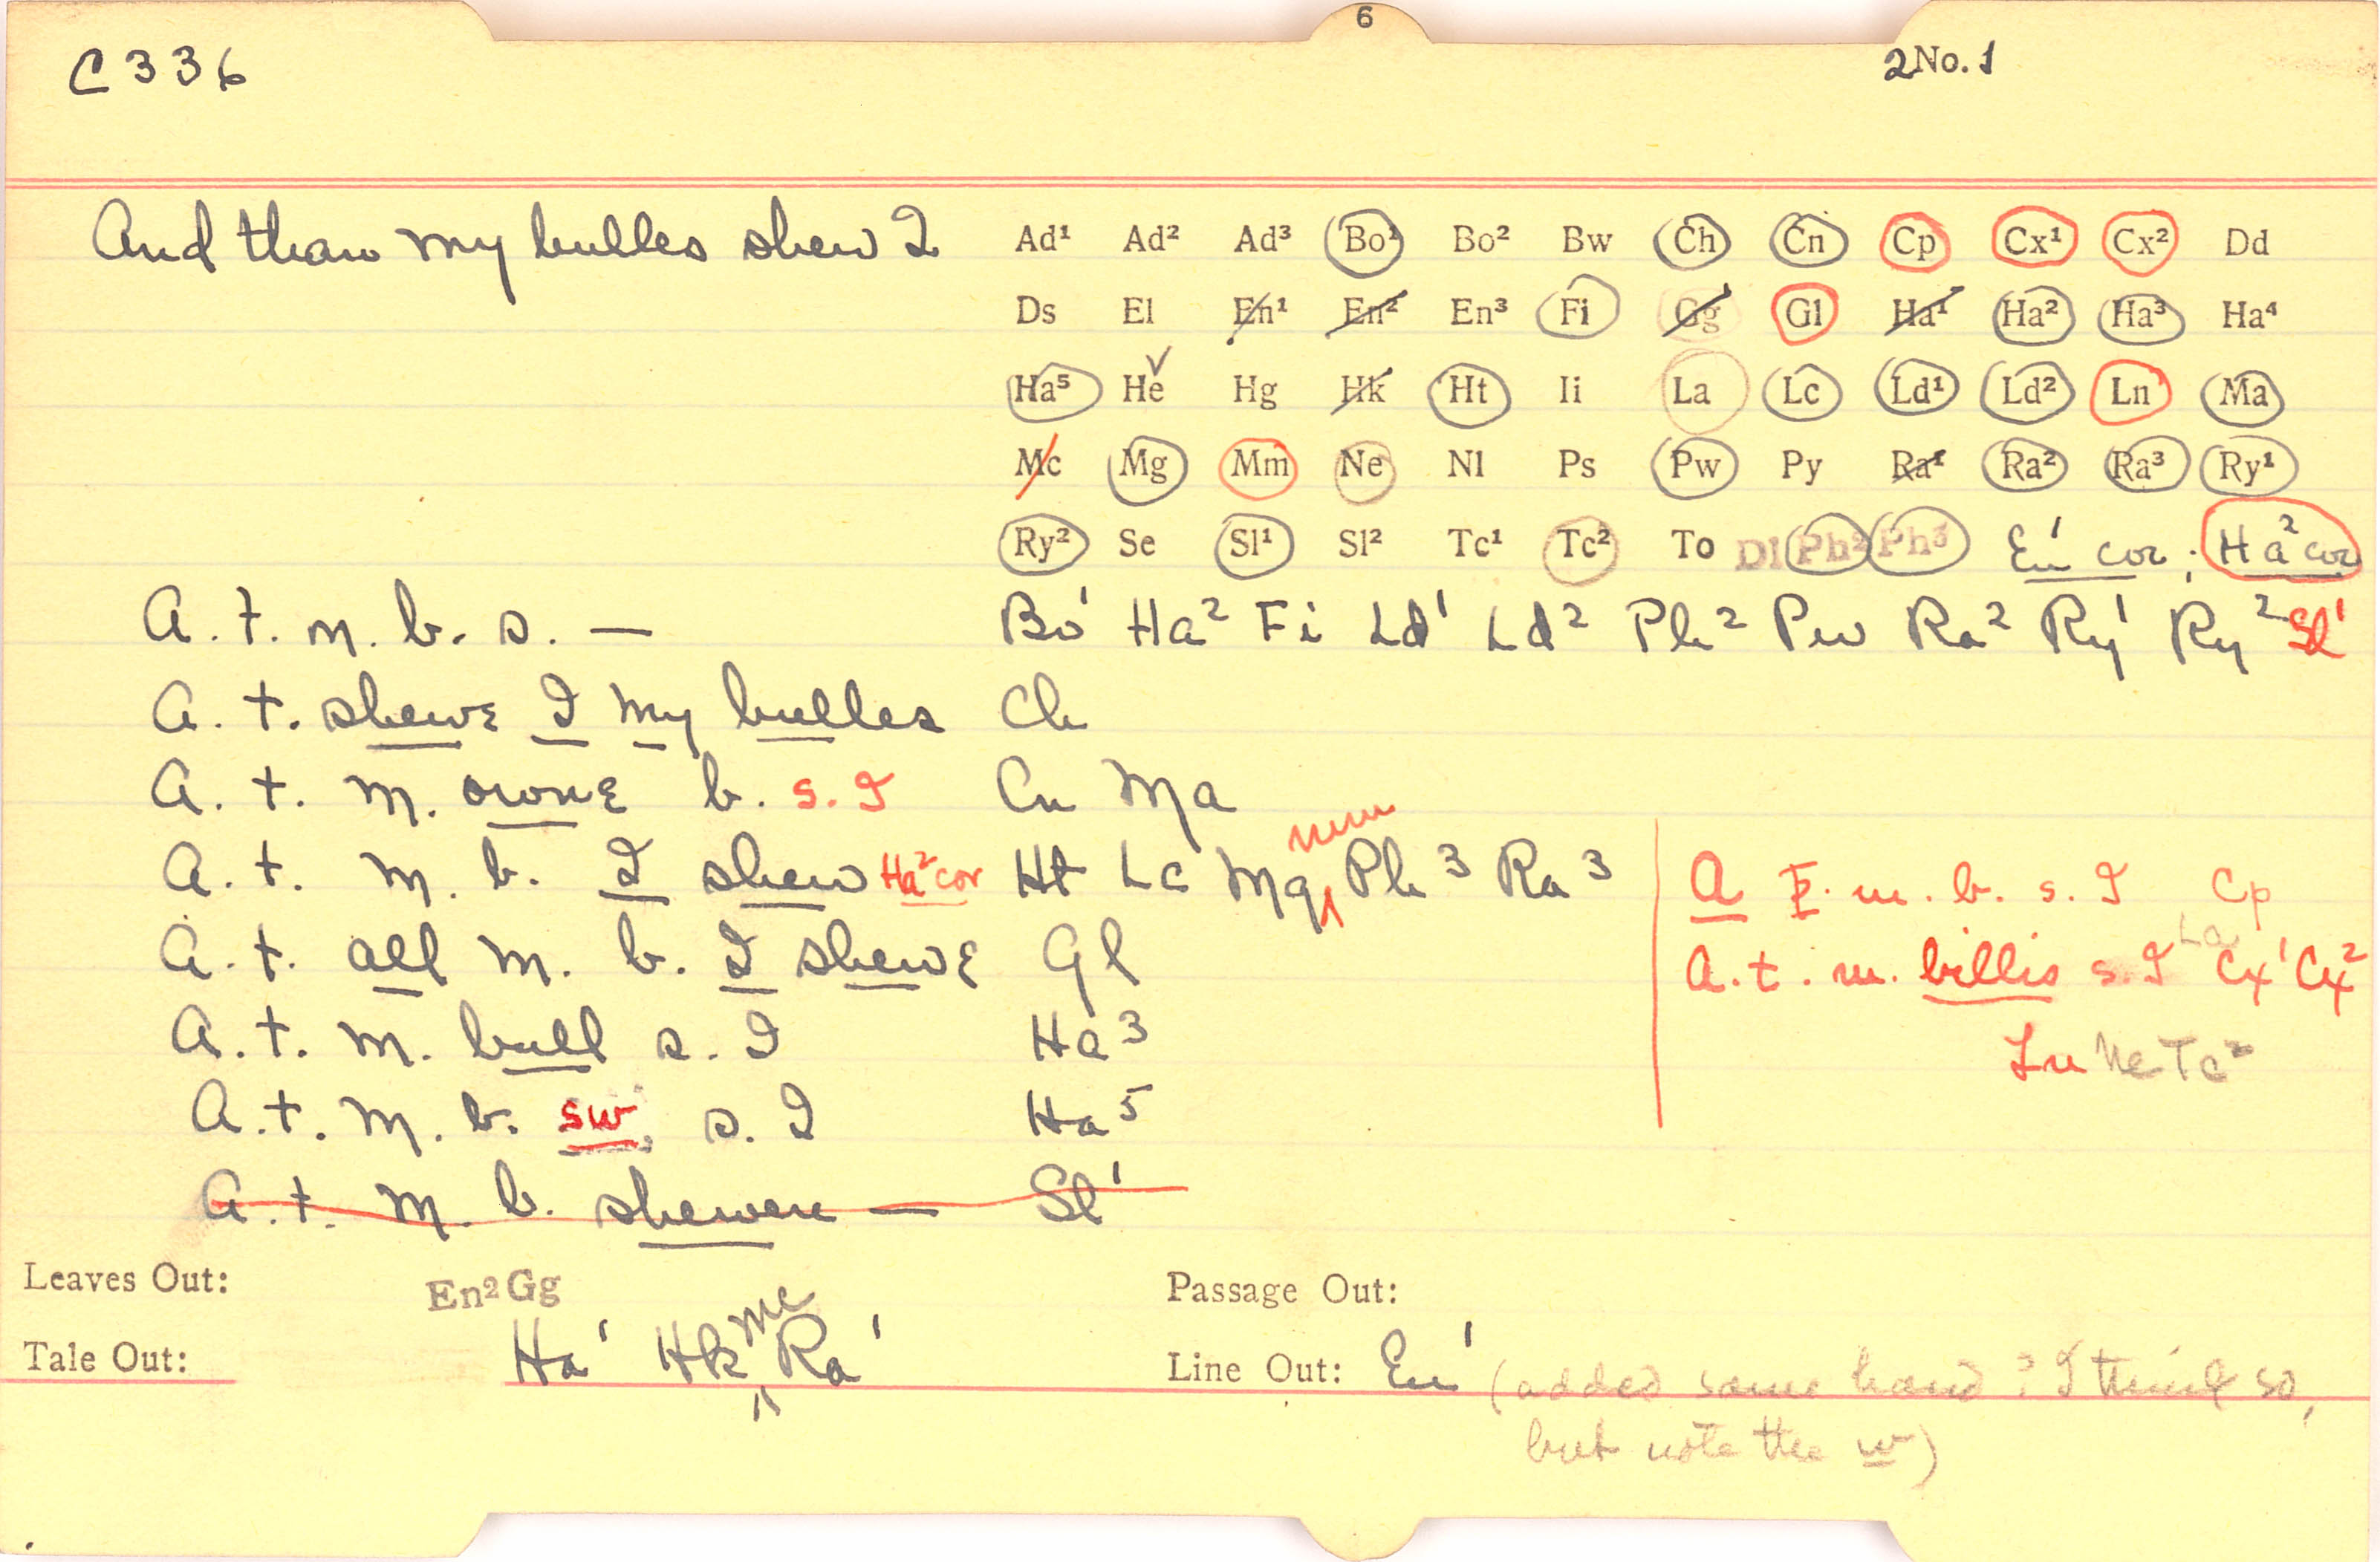 6
C 336
2No. 1
And than my bulles shew I
Ad¹ Ad² Ad³ Bo¹ Bo² Bw Ch Cn Cp Cx¹ Cx² Dd
Ds El En¹ En² En³ Fi Gg Gl Ha¹ Ha² Ha³ Ha⁴
Ha⁵ He Hg Hk Ht Ii La Lc Ld¹ Ld² Ln Ma
Mc Mg Mm Ne Nl Ps Pw Py Ra¹ Ra² Ra³ Ry¹
Ry² Se Sl¹ Sl² Tc¹ Tc² To Dl Ph² Ph³ En¹ cor ; Ha² cor
A. t. m. b. s. — Bo¹ Ha² Fi Ld¹ Ld² Ph² Pw Ra² Ry¹ Ry² Sl¹
A. t. shewe I my bulles Ch
A. t. m. owne b. s. I Cn Ma
A. t. m. b. I shew Ha² cor Ht Lc Mg Mm Ph³ Ra³
A t. m. b. s. I Cp
A. t. all m. b. I shewe Gl
A. t. m. billis s. I La Cx¹ Cx²
Ln Ne Tc²
A. t. m. bull s. I Ha³
A. t. m. b. sw. s. I Ha⁵
A. t. m. b. shewen — Sl¹
Leaves Out: En² Gg
Passage Out:
Tale Out: Ha¹ Hk Mc Ra¹
Line Out: En¹ (added same hand? I think so,
but note the w)